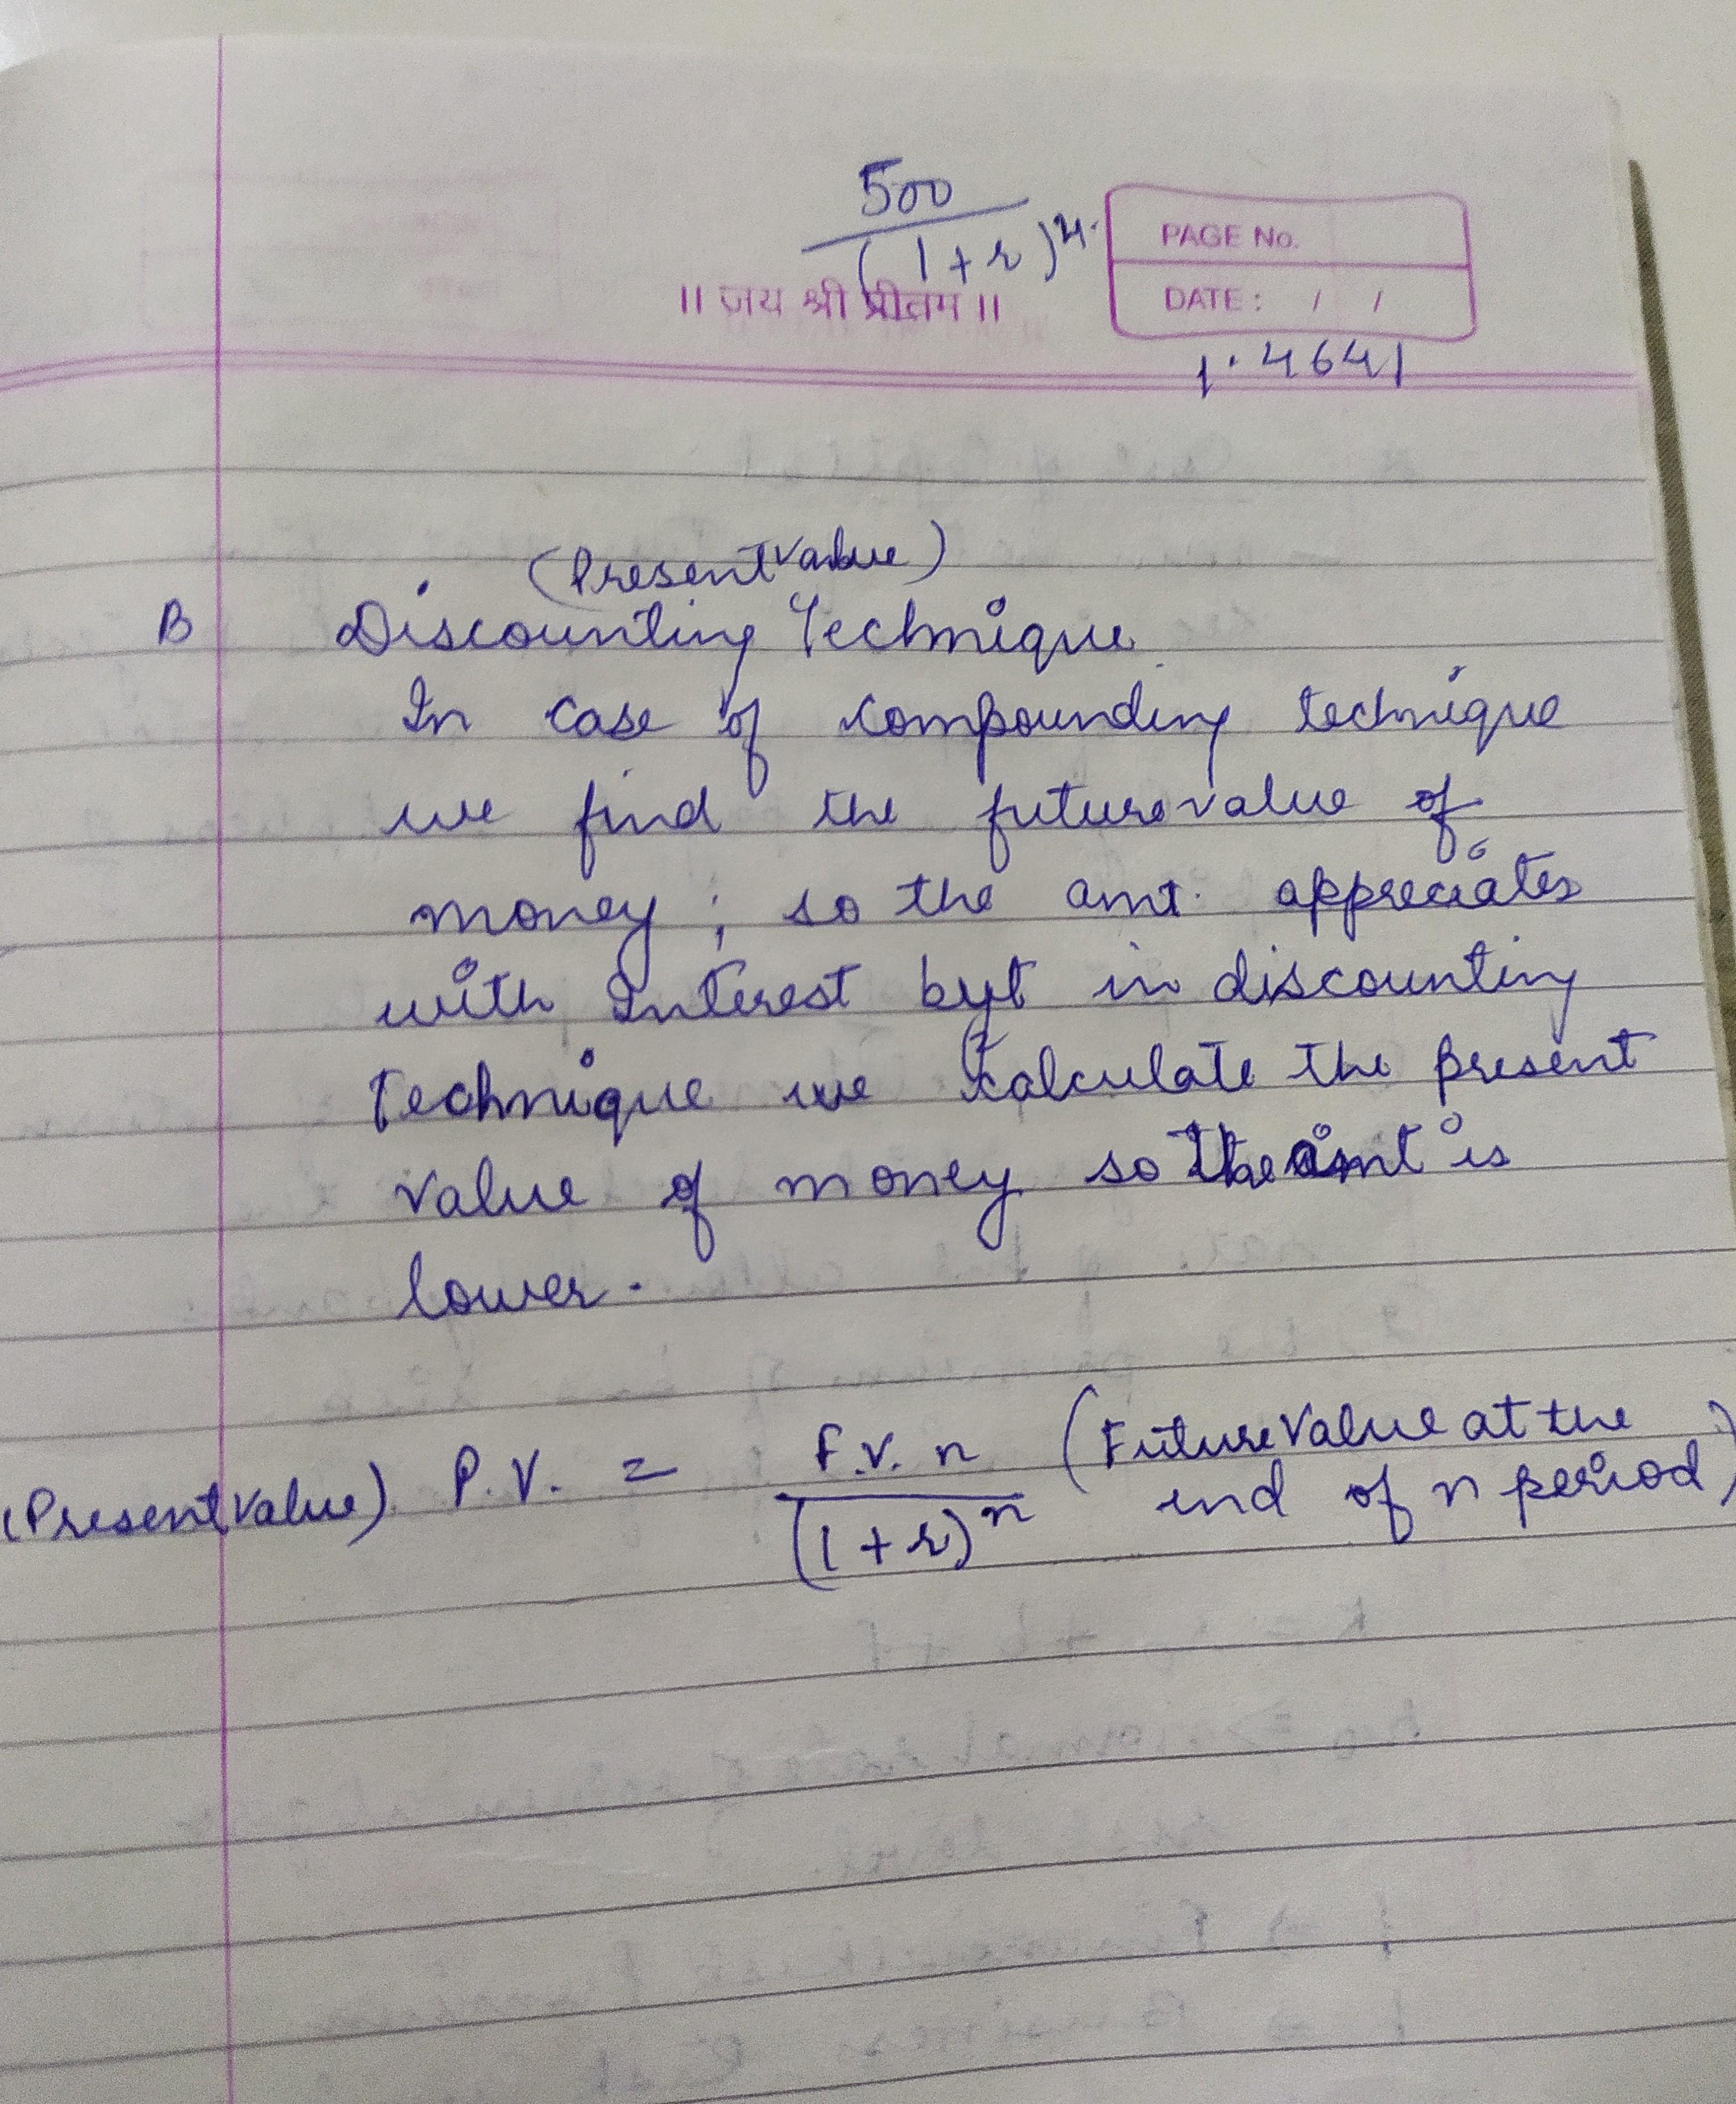 500
(1+r)⁴.
PAGE No.
DATE: / /
॥ जय श्री प्रीतम ॥
1.4641
(Present Value)
B Discounting Technique
In case of compounding technique
we find the future value of
money ; so the amt. appreciates
with Interest but in discounting
technique we calculate the present
value of money so the amt is
lower.
(Present Value) P.V. = F.V. n (Future Value at the
(1+r)ⁿ end of n period)